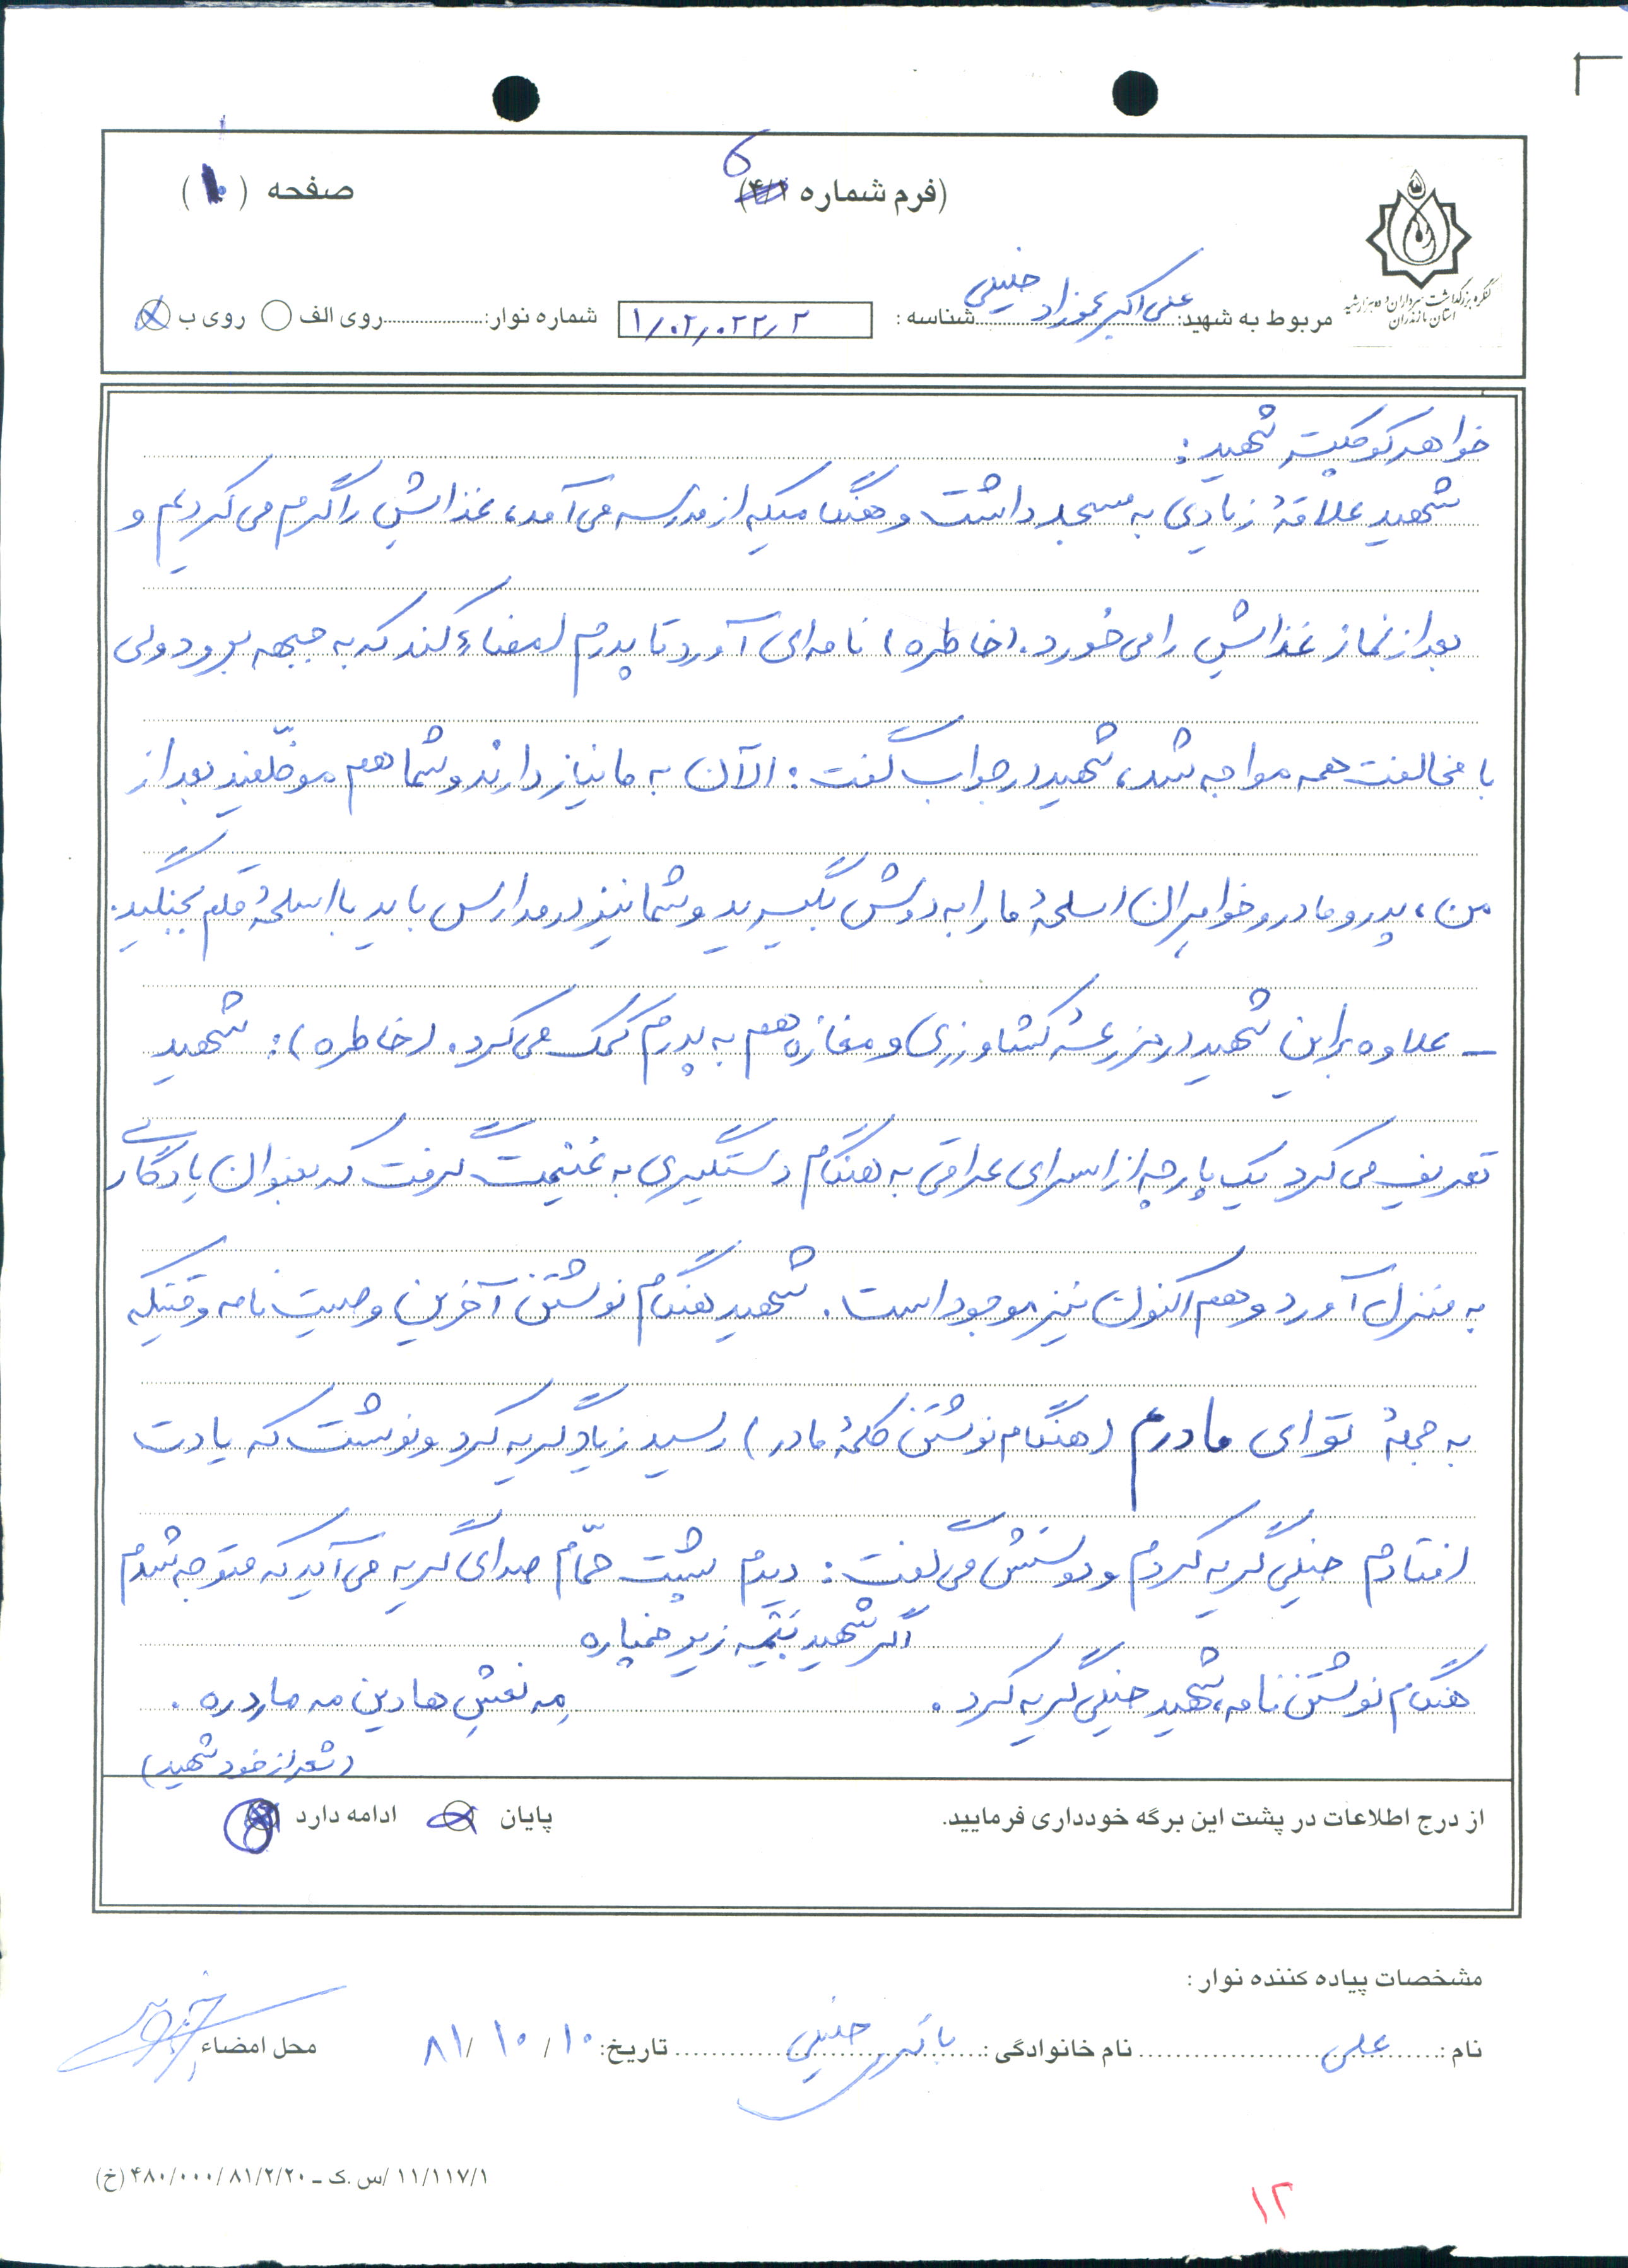 (فرم شماره ۴/۱) ۵
صفحه (۱)
کنگره بزرگداشت سرداران و ده هزار شهید
استان مازندران
مربوط به شهید: علی اکبر عموزاد خلیلی شناسه: ۱/۰۲/۰۲۲/۲ شماره نوار: روی الف روی ب
خواهر کوچکتر شهید:
شهید علاقهٔ زیادی به مسجد داشت و هنگامیکه از مدرسه می‌آمد، غذایش را گرم می‌کردیم و
بعد از نماز غذایش را می‌خورد. (خاطره) نامه‌ای آورد تا پدرم امضاء کند که به جبهه برود ولی
با مخالفت همه مواجه شد، شهید در جواب گفت: الآن به ما نیاز دارند و شما هم موظّفید بعد از
من، پدر و مادر و خواهران اسلحهٔ ما را به دوش بگیرید و شما نیز در مدارس باید با اسلحهٔ قلم بجنگید.
ـ علاوه بر این شهید در مزرعهٔ کشاورزی و مغازه هم به پدرم کمک می‌کرد. (خاطره): شهید
تعریف می‌کرد یک پارچه از اسرای عراقی به هنگام دستگیری به غنیمت گرفت که بعنوان یادگاری
به منزل آورد و هم اکنون نیز موجود است. شهید هنگام نوشتن آخرین وصیت نامه وقتیکه
به جملهٔ تو ای مادرم (هنگام نوشتن کلمهٔ مادر) رسید زیاد گریه کرد و نوشت که یادت
افتادم خیلی گریه کردم و دوستش می‌گفت: دیدم پشت حمّام صدای گریه می‌آید که متوجه شدم
اگر شهید بَیّمه زیر خمپاره
هنگام نوشتن نامه، شهید خیلی گریه کرد. مِه نعشِ هادین مه مار دره.
(شعر از خود شهید)
از درج اطلاعات در پشت این برگه خودداری فرمایید. پایان ادامه دارد
مشخصات پیاده کننده نوار:
نام: علی نام خانوادگی: باقری خلیلی تاریخ: ۱۰/ ۱۰/ ۸۱ محل امضاء
۱۱/۱۱۷/۱ /س.ک ـ ۴۸۰/۰۰۰/۸۱/۲/۲۰ (خ)
۱۲